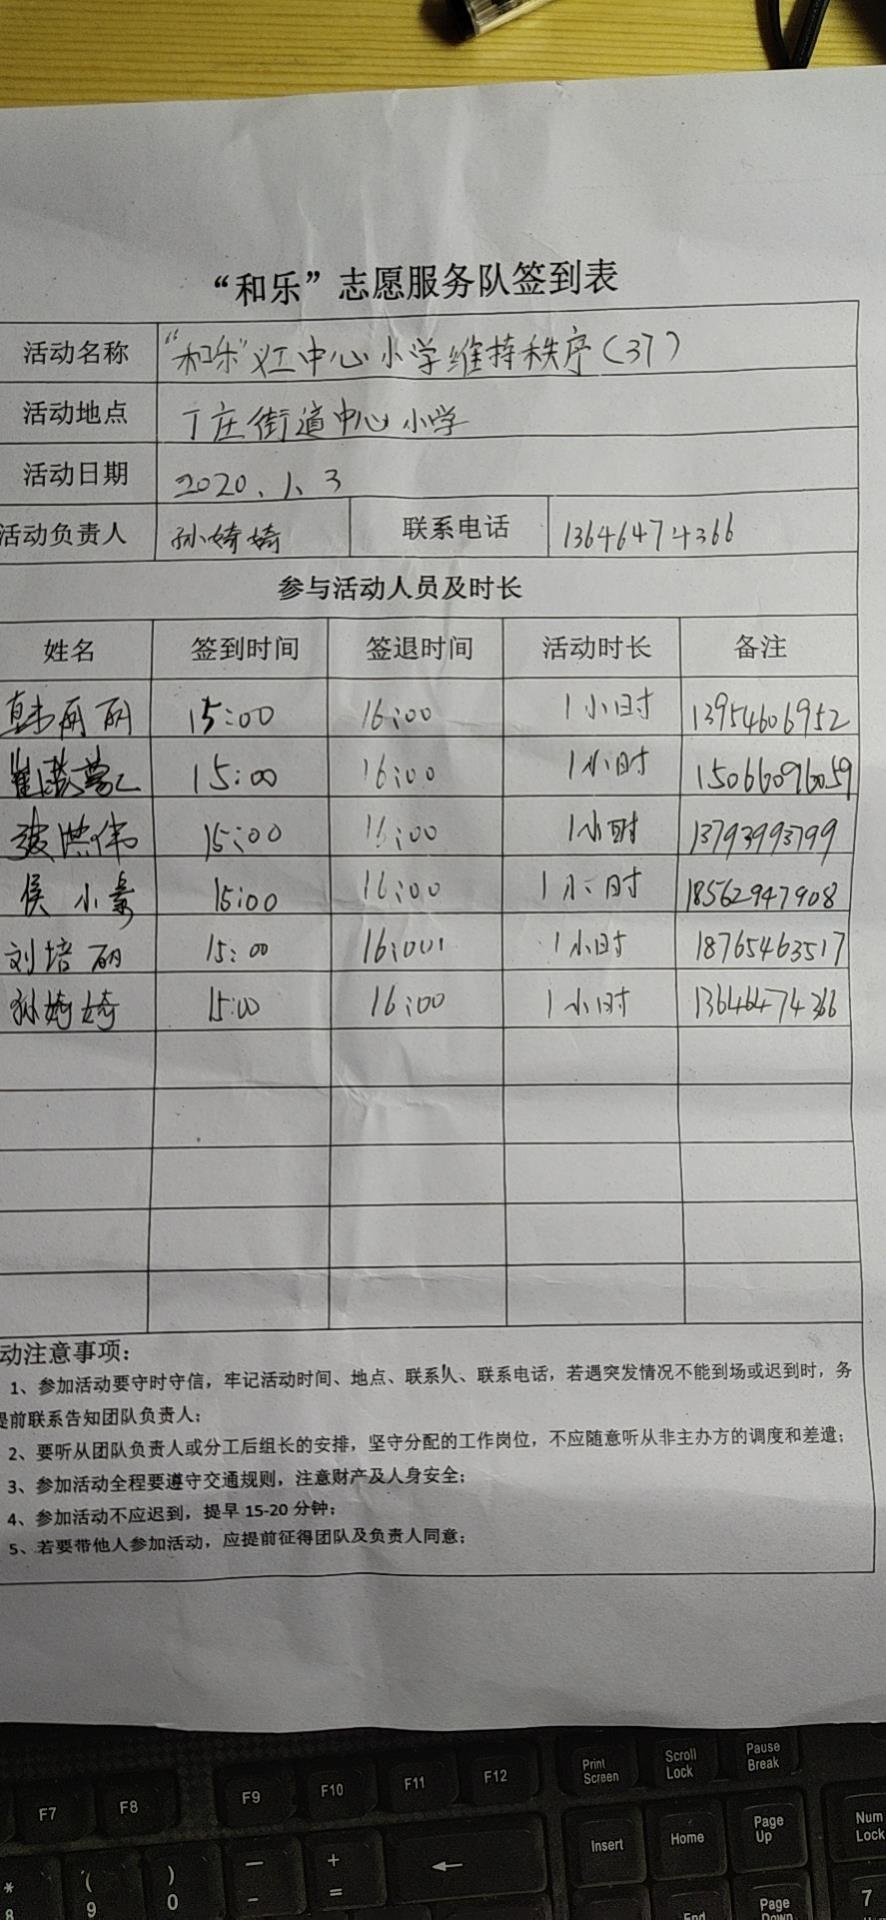 “和乐”志愿服务队签到表
活动名称 “和乐”义工中心小学维持秩序(37)
活动地点 丁庄街道中心小学
活动日期 2020、1、3
活动负责人 孙婍婍 联系电话 13646474366
参与活动人员及时长
姓名 签到时间 签退时间 活动时长 备注
韩丽丽 15:00 16:00 1小时 13954606952
15:00 16:00 1小时 15066096059
15:00 16:00 1小时 13793993799
侯小 15:00 16:00 1小时 18562947908
刘培丽 15:00 16:00 1小时 18765463517
孙婍婍 15:00 16:00 1小时 13646474366
动注意事项：
1、参加活动要守时守信，牢记活动时间、地点、联系人、联系电话，若遇突发情况不能到场或迟到时，务
提前联系告知团队负责人；
2、要听从团队负责人或分工后组长的安排，坚守分配的工作岗位，不应随意听从非主办方的调度和差遣；
3、参加活动全程要遵守交通规则，注意财产及人身安全；
4、参加活动不应迟到，提早 15-20 分钟；
5、若要带他人参加活动，应提前征得团队及负责人同意；
F7 F8 F9 F10 F11 F12 Print Screen Scroll Lock Pause Break
* 8 ( 9 ) 0 — - + = ← Insert Home Page Up Num Lock
End Page Down 7